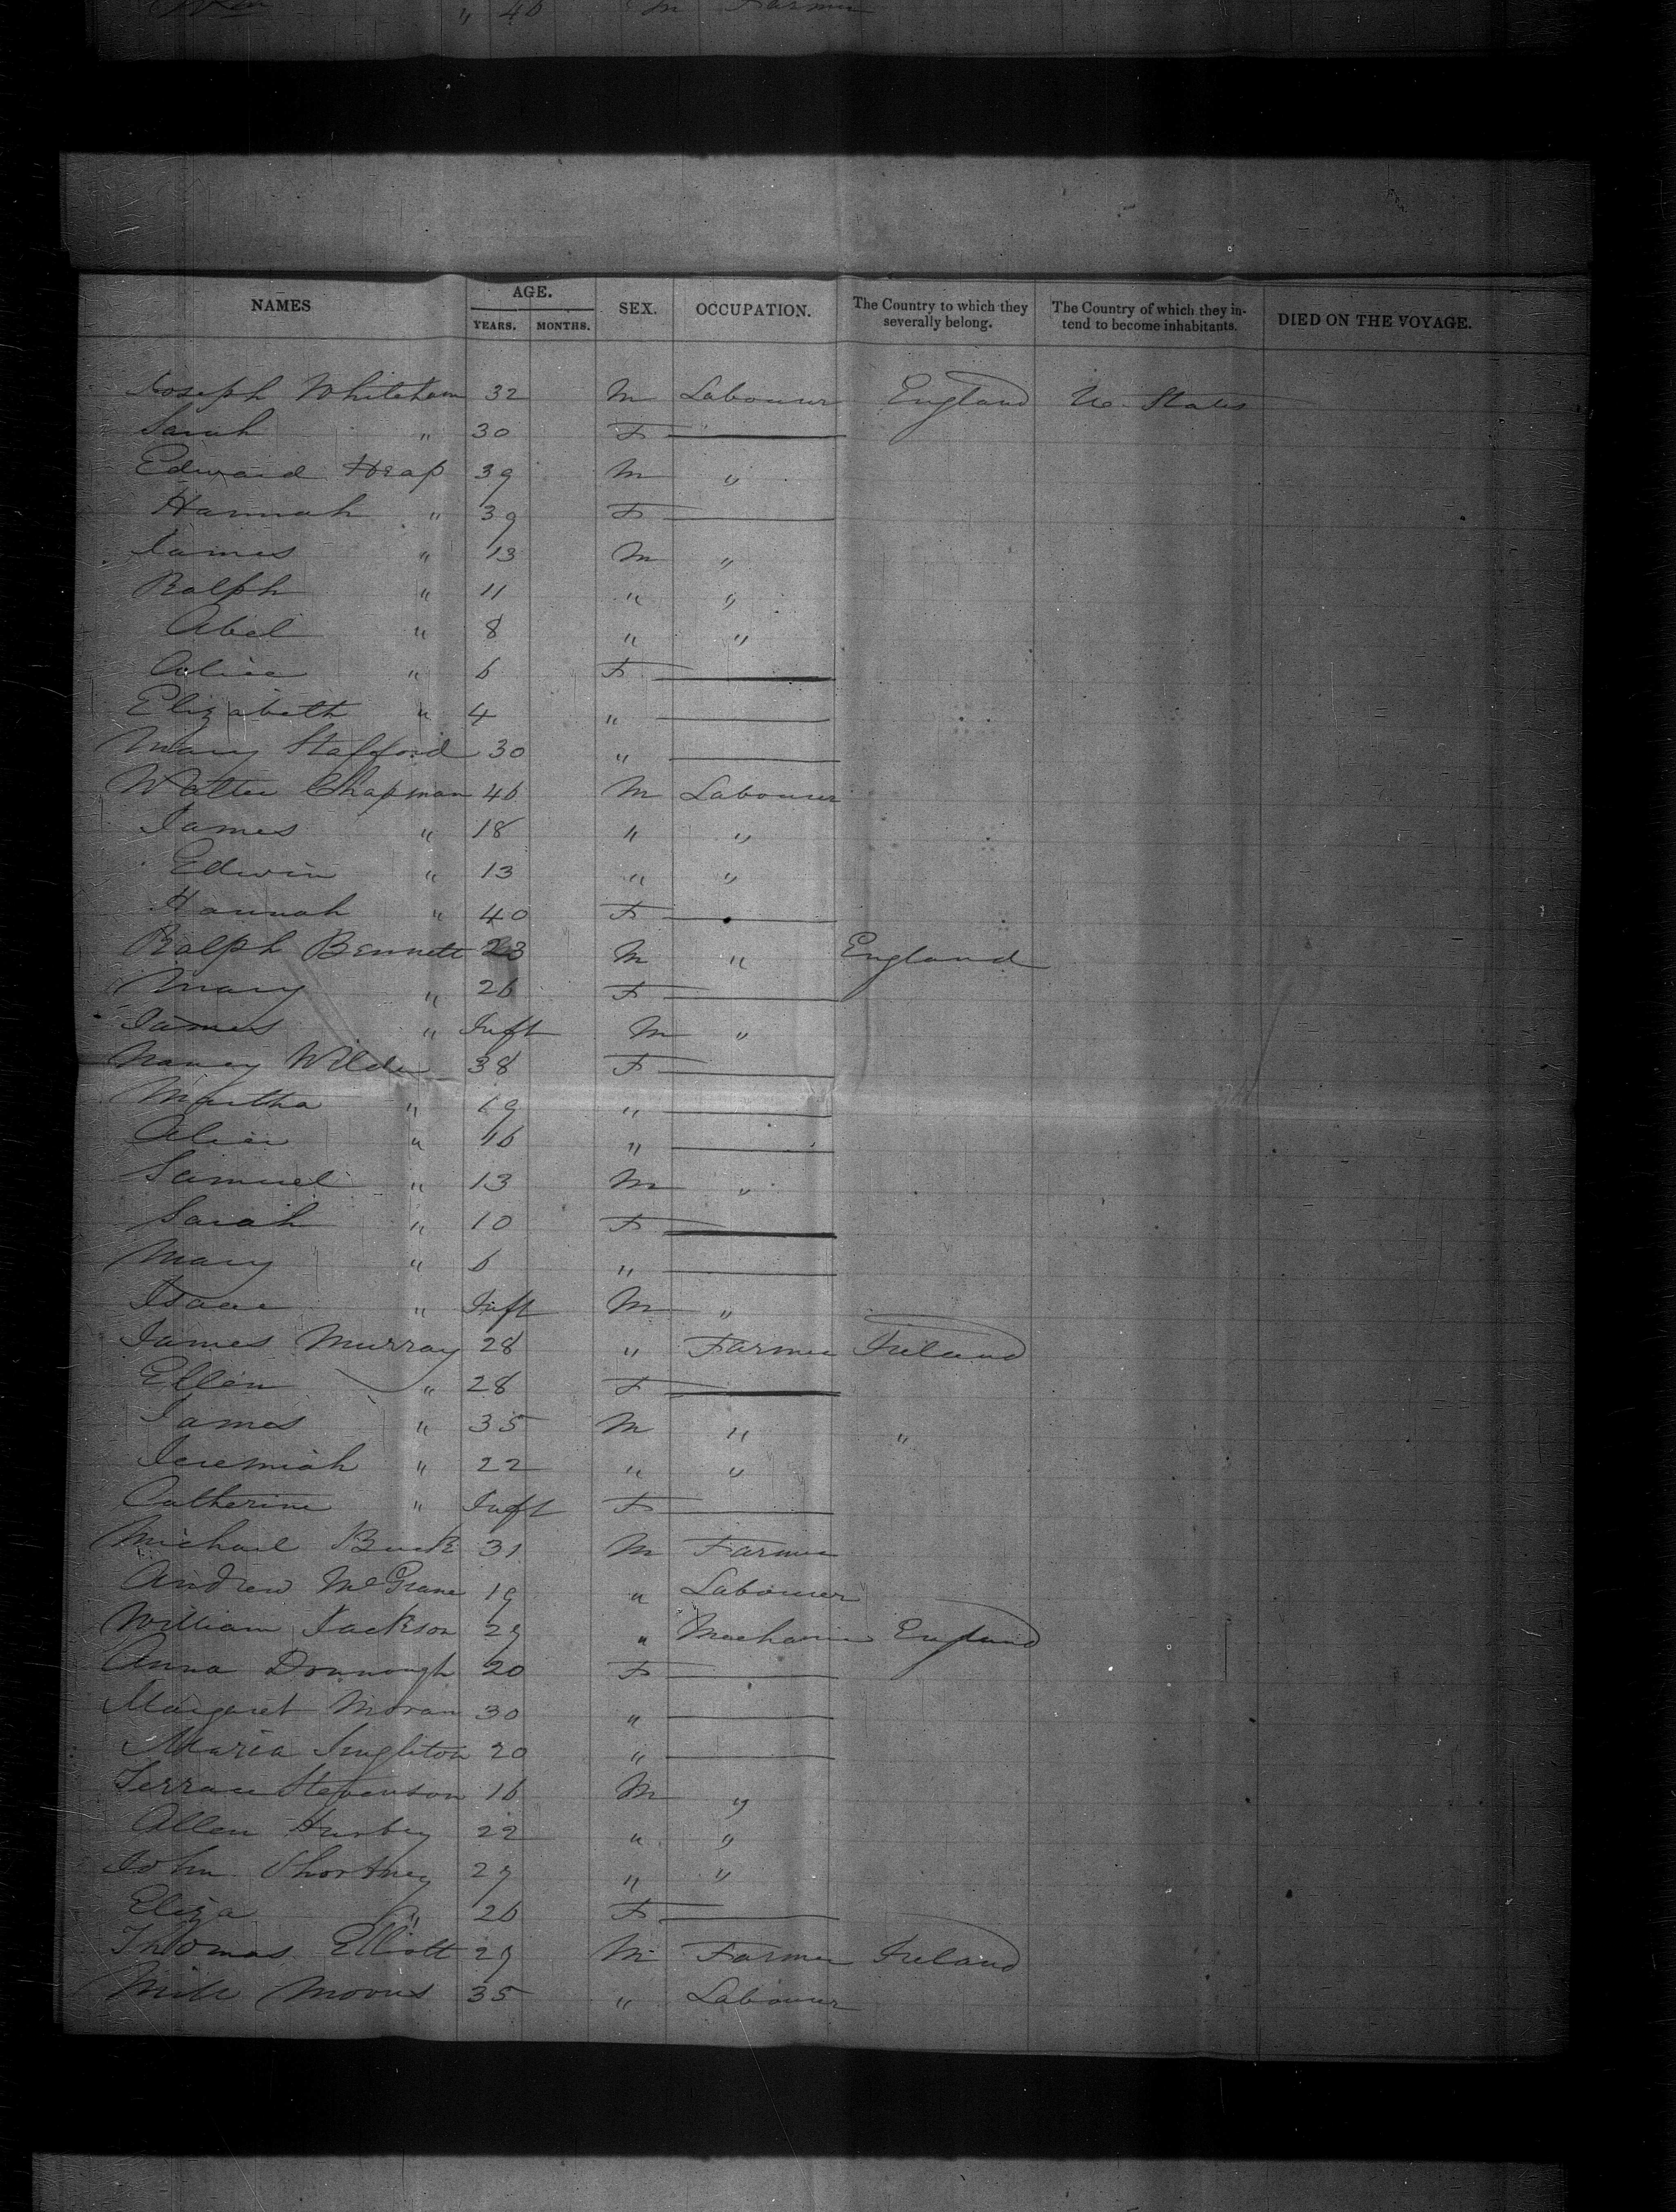 " 46 " M Farmer
NAMES AGE. YEARS. MONTHS. SEX. OCCUPATION. The Country to which they severally belong. The Country of which they intend to become inhabitants. DIED ON THE VOYAGE.
Joseph Whiteham 32 M Labourer England U. States
Sarah " 30 F —
Edward Heap 39 M "
Hannah " 39 F —
James " 13 M "
Ralph " 11 " "
Abel " 8 " "
Alice " 6 F —
Elizabeth " 4 " —
Mary Stafford 30 " —
Walter Chapman 46 M Labourer
James " 18 " "
Edwin " 13 " "
Hannah " 40 F —
Ralph Bennett 23 M " England
Mary " 26 F —
James " Inft M "
Nancy Wilde 38 F —
Martha " 19 " —
Alice " 16 " —
Samuel " 13 M "
Sarah " 10 F —
Mary " 6 " —
Isaac " Inft M "
James Murray 28 " Farmer Ireland
Ellen " 28 F —
James " 35 M " "
Jeremiah " 22 " "
Catherine " Inft F —
Michael Buck 31 M Farmer
Andrew McGrane 19 " Labourer
William Jackson 29 " Mechanic England
Anna Donnough 20 F —
Margaret Moran 30 " —
Maria Singleton 20 " —
Terrace Stevenson 16 M "
Allen 22 " "
John Shortney 27 " "
Eliza " 26 F —
Thomas Elliott 29 M Farmer Ireland
35 " Labourer